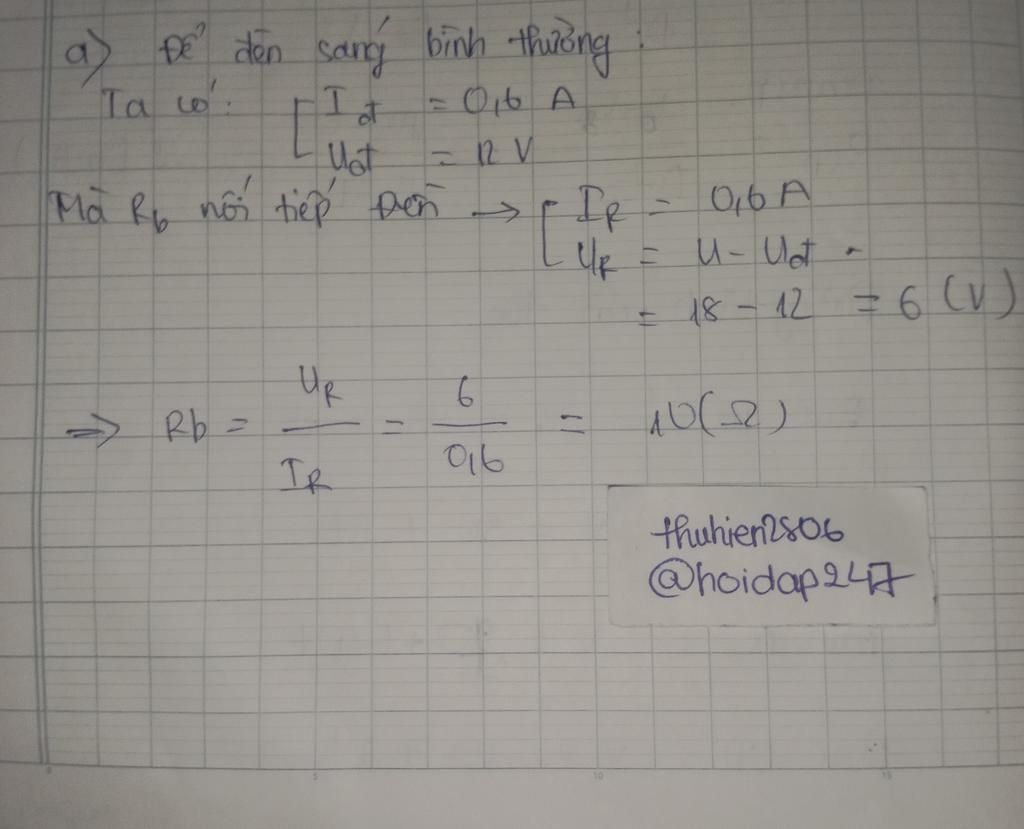 a) Để đèn sáng bình thường :
Ta có: [ I đ = 0,6 A
Uđ = 12 V
Mà Rb nối tiếp Đèn → [ IR = 0,6 A
UR = U - Uđ
= 18 - 12 = 6 (V)
⇒ Rb = UR / IR = 6 / 0,6 = 10 (Ω)
thuhien2806
@hoidap247
0 5 10 15